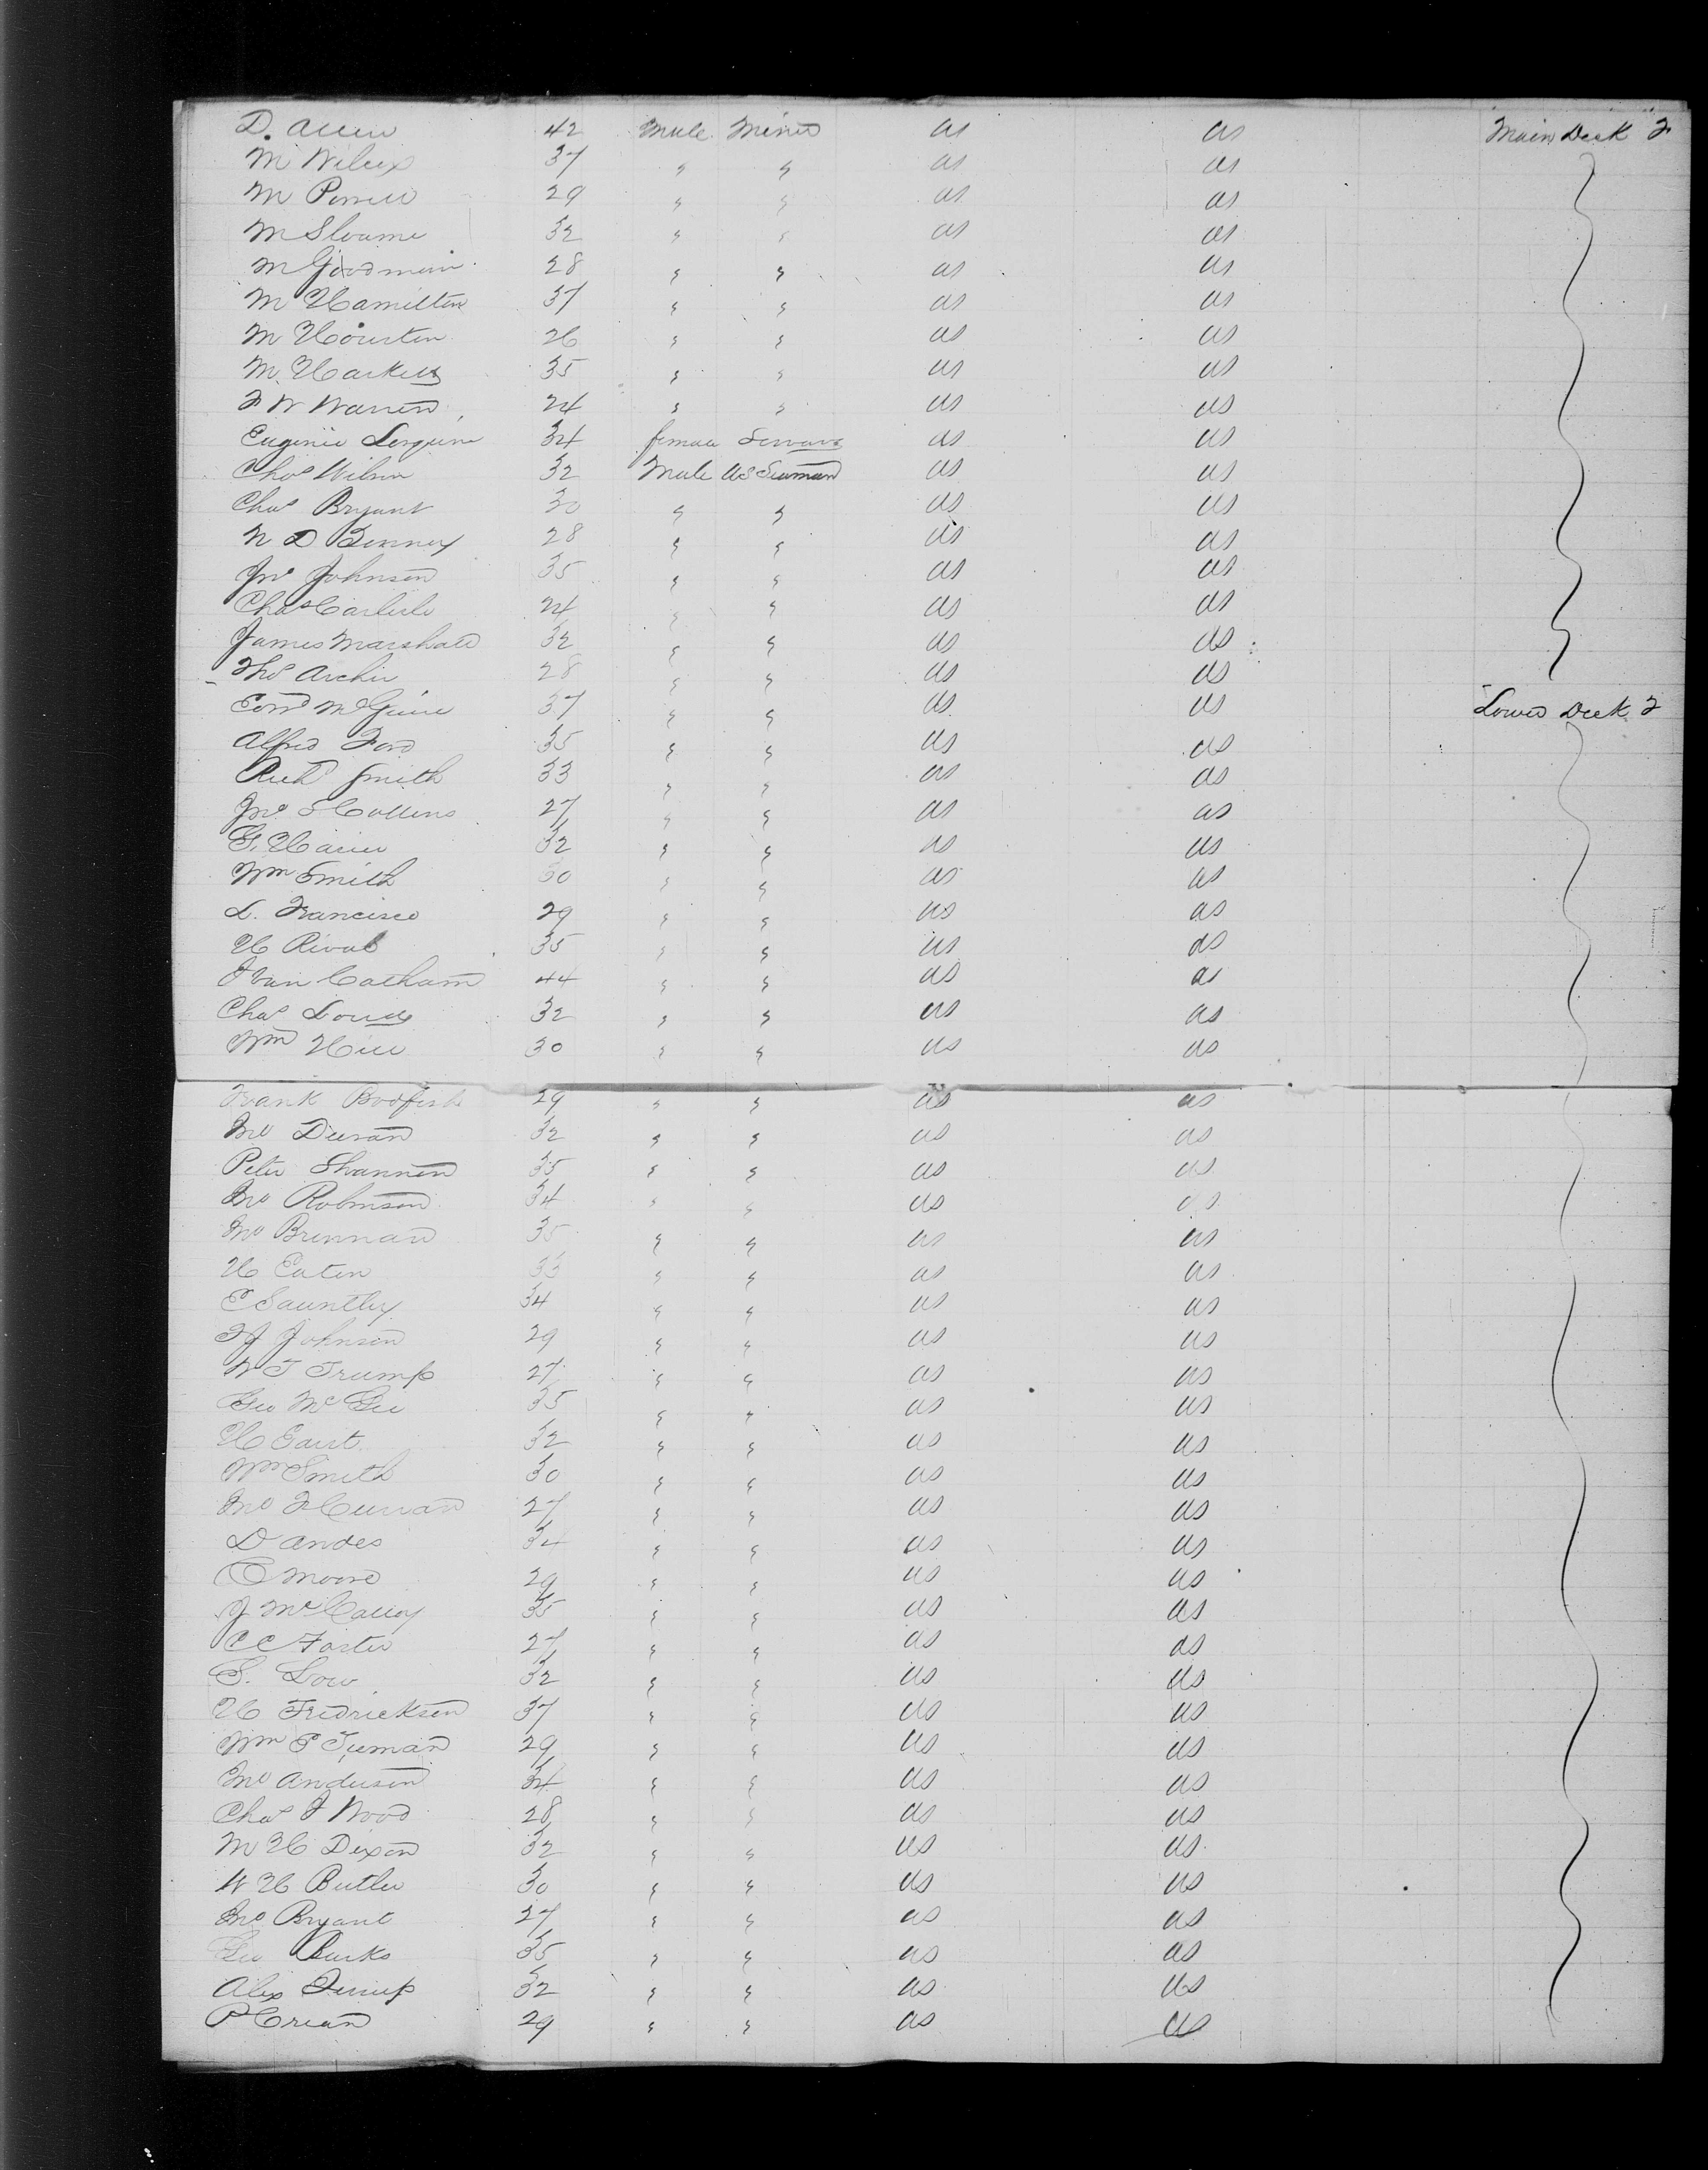 D. Allen 42 Male Miner US US Main Deck F
M Wilcox 37 " " US US
M Powell 29 " " US US
M Sloame 32 " " US US
M Goodman 28 " " US US
M Hamilton 37 " " US US
M Hourston 26 " " US US
M. Harkell 35 " " US US
F W Warren 24 " " US US
Eugenie 34 female Servant US US
Chas Wilson 32 Male US Seaman US US
Chas Bryant 30 " " US US
N D Benney 28 " " US US
Jno Johnson 35 " " US US
Chas Carlisle 24 " " US US
James Marshall 32 " " US US
Thos Archer 28 " " US US
Edwd McGuire 37 " " US US Lower Deck F
Alfred Ford 35 " " US US
Richd Smith 33 " " US US
Jno S Collins 27 " " US US
G. 32 " " US US
Wm Smith 30 " " US US
L. Francisco 29 " " US US
H Rival 35 " " US US
J Van Catham 44 " " US US
Chas Loudy 32 " " US US
Wm Hill 30 " " US US
Frank Bodfish 29 " " US US
Jno Duran 32 " " US US
Peter Shannon 35 " " US US
Jno Robinson 34 " " US US
Jno Brennan 35 " " US US
H Eaton 33 " " US US
E Gauntley 34 " " US US
F J Johnson 29 " " US US
W T Trump 27 " " US US
Geo McGee 35 " " US US
H East 32 " " US US
Wm Smith 30 " " US US
Jno F Curran 27 " " US US
D Andes 34 " " US US
C Moore 29 " " US US
J McCalley 35 " " US US
C C Foster 27 " " US US
S. Low 32 " " US US
H Fredrickson 37 " " US US
Wm P Tieman 29 " " US US
Jno Anderson 34 " " US US
Chas J Wood 28 " " US US
M H Dixon 32 " " US US
W H Butler 30 " " US US
Jno Bryant 27 " " US US
Geo Burks 35 " " US US
Alex 32 " " US US
P Crean 29 " " US US